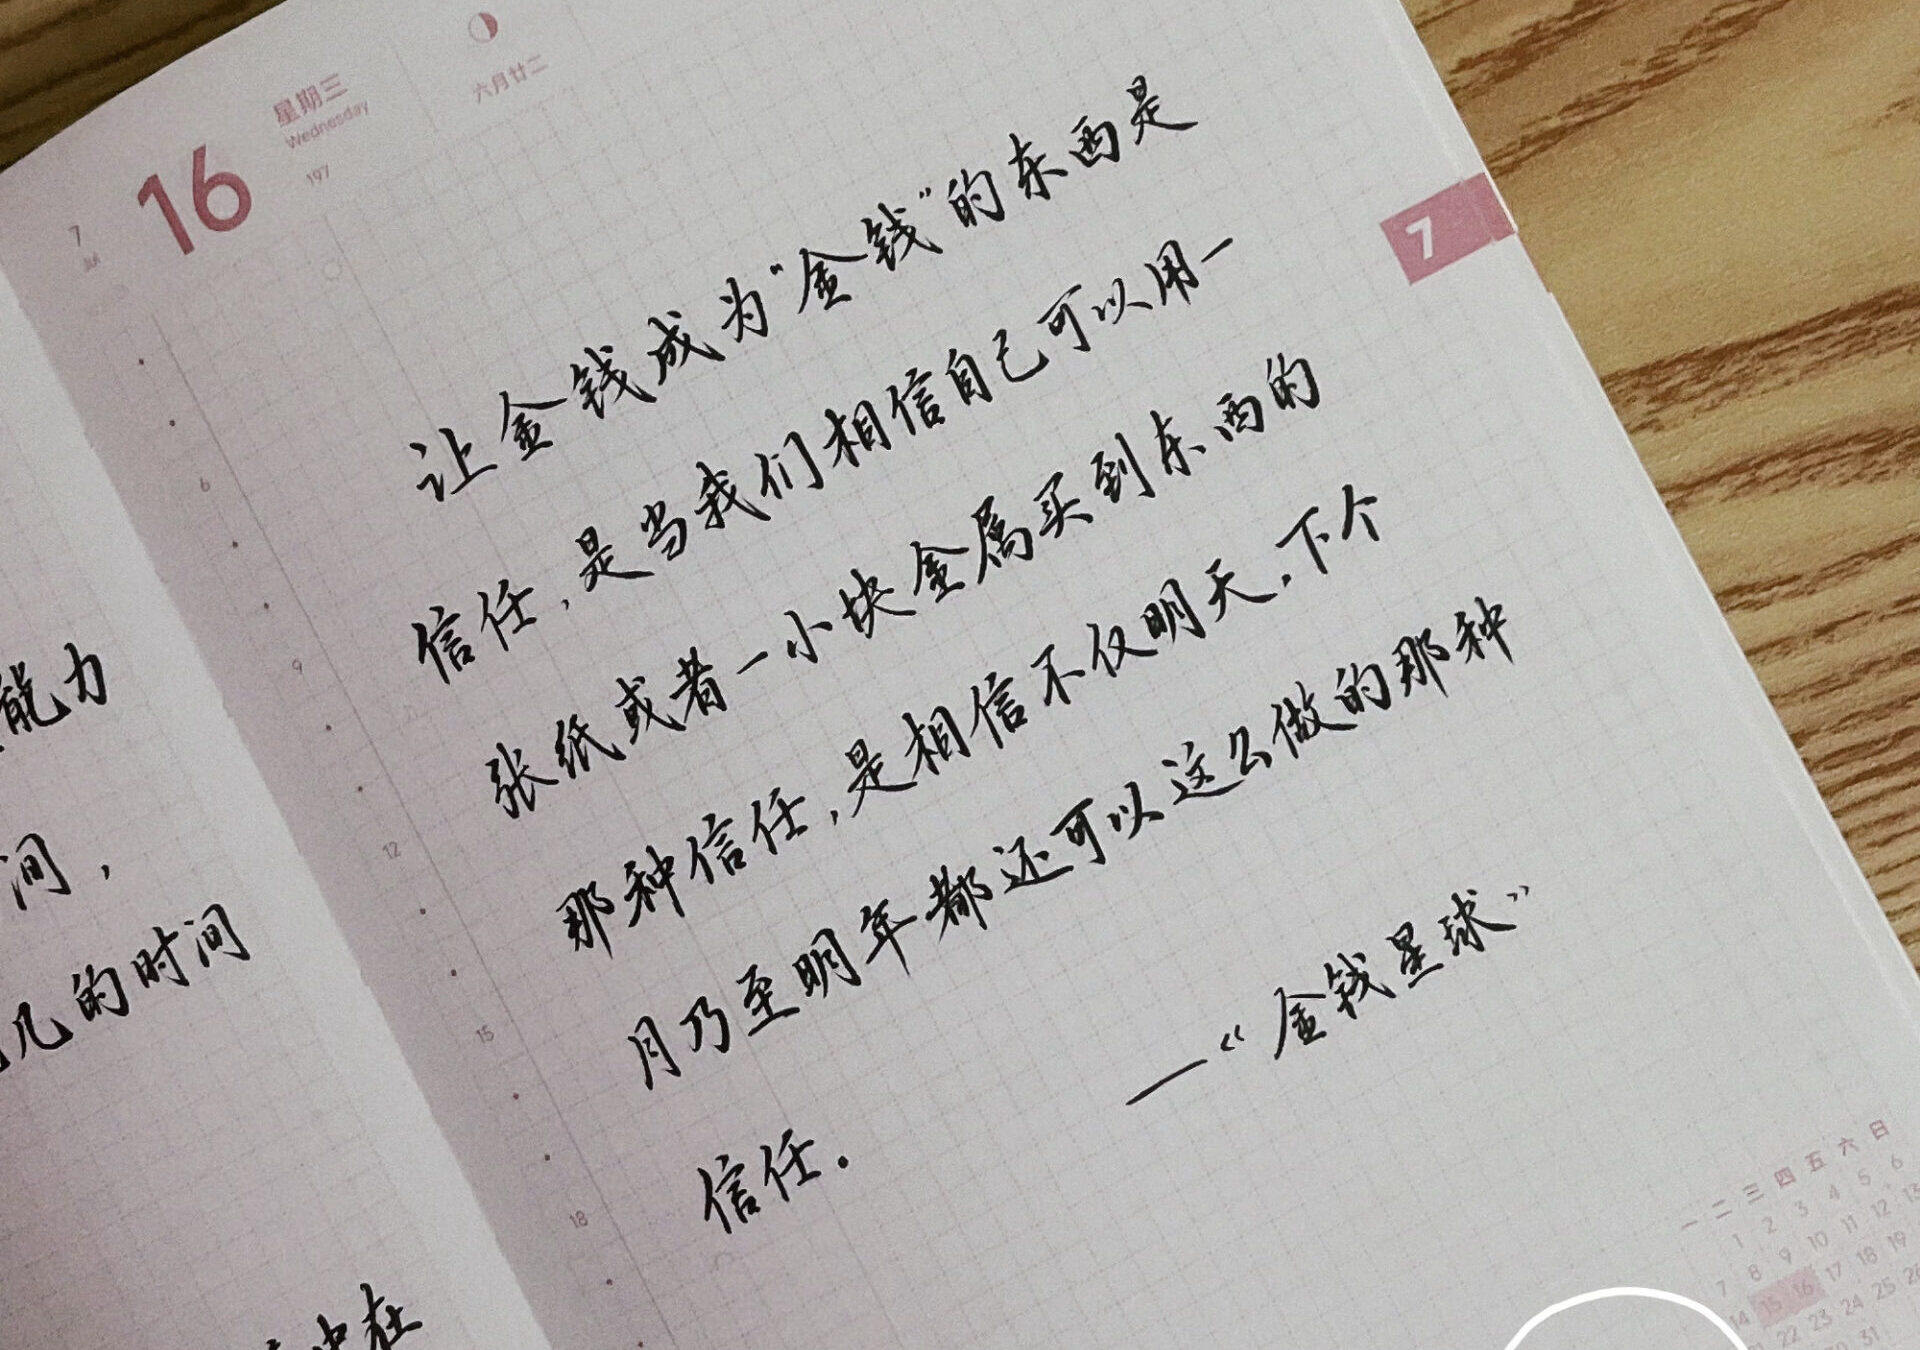 7
Jul
16
星期三
Wednesday
197
六月廿二
7
让金钱成为“金钱”的东西是
信任,是当我们相信自己可以用一
张纸或者一小块金属买到东西的
那种信任,是相信不仅明天,下个
月乃至明年都还可以这么做的那种
信任.
—《金钱星球》
6
9
12
15
18
能力
间,
几的时间
在
一 二 三 四 五 六 日
1 2 3 4 5 6
7 8 9 10 11 12 13
14 15 16 17 18 19
22 23 24 25 26
30 31